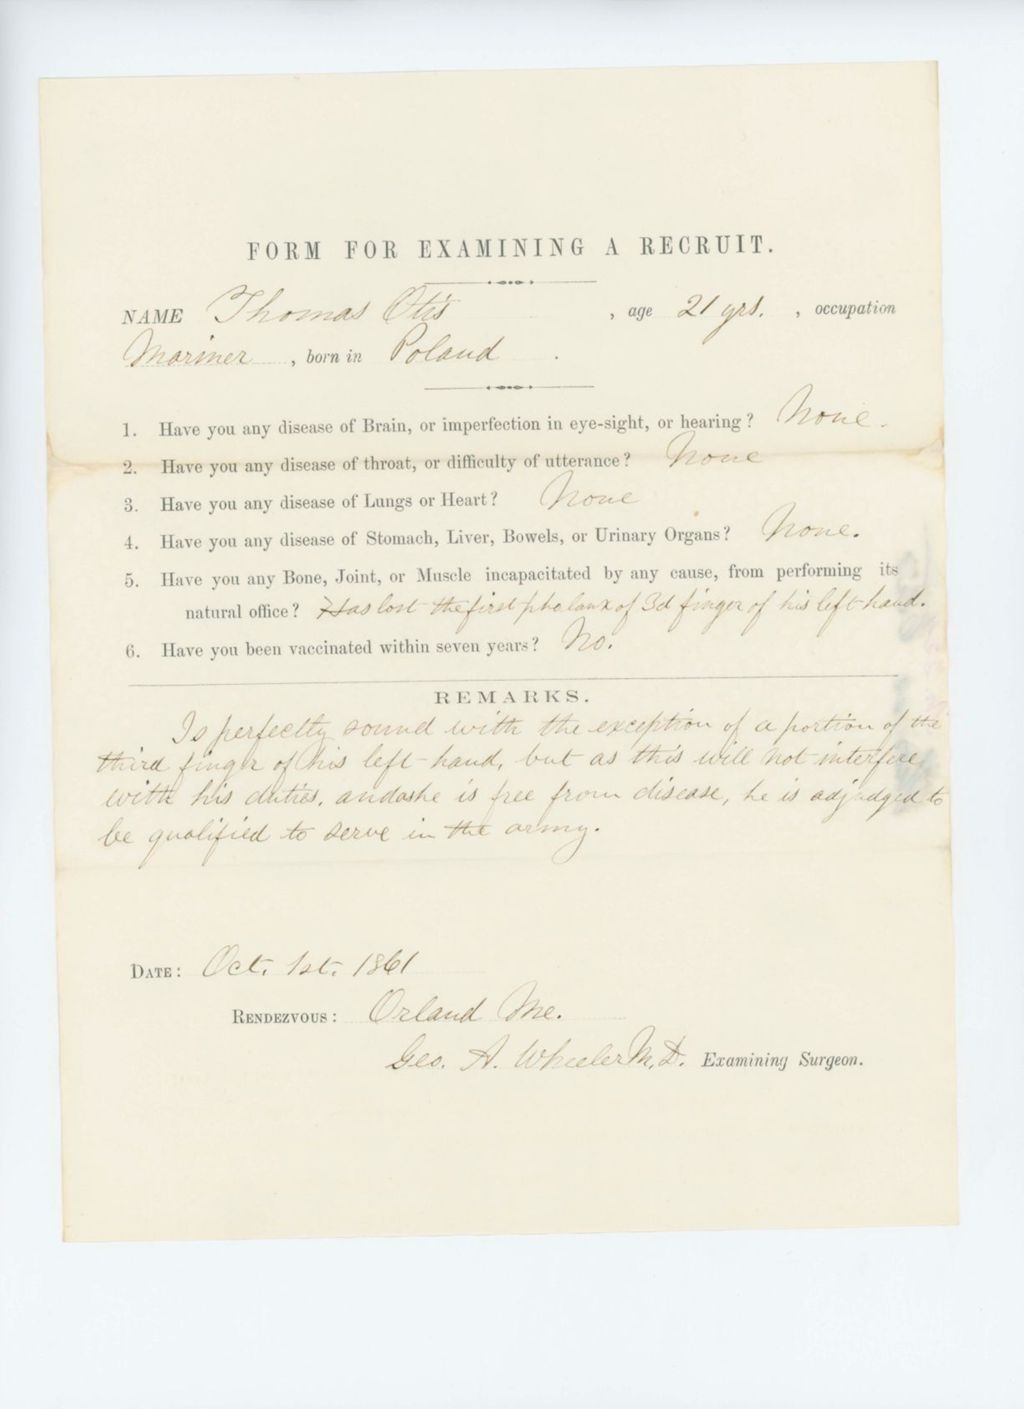 FORM FOR EXAMINING A RECRUIT.
NAME Thomas Otis , age 21 yrs. , occupation
Mariner , born in Poland .
1. Have you any disease of Brain, or imperfection in eye-sight, or hearing? None.
2. Have you any disease of throat, or difficulty of utterance? None
3. Have you any disease of Lungs or Heart? None
4. Have you any disease of Stomach, Liver, Bowels, or Urinary Organs? None.
5. Have you any Bone, Joint, or Muscle incapacitated by any cause, from performing its
natural office? Has lost the first phalanx of 3d finger of his left hand.
6. Have you been vaccinated within seven years? No.
REMARKS.
Is perfectly sound with the exception of a portion of the
third finger of his left hand, but as this will not interfere
with his duties, and as he is free from disease, he is adjudged to
be qualified to serve in the army.
DATE: Oct. 1st. 1861
RENDEZVOUS: Orland Me.
Geo. A. Wheeler M.D. Examining Surgeon.